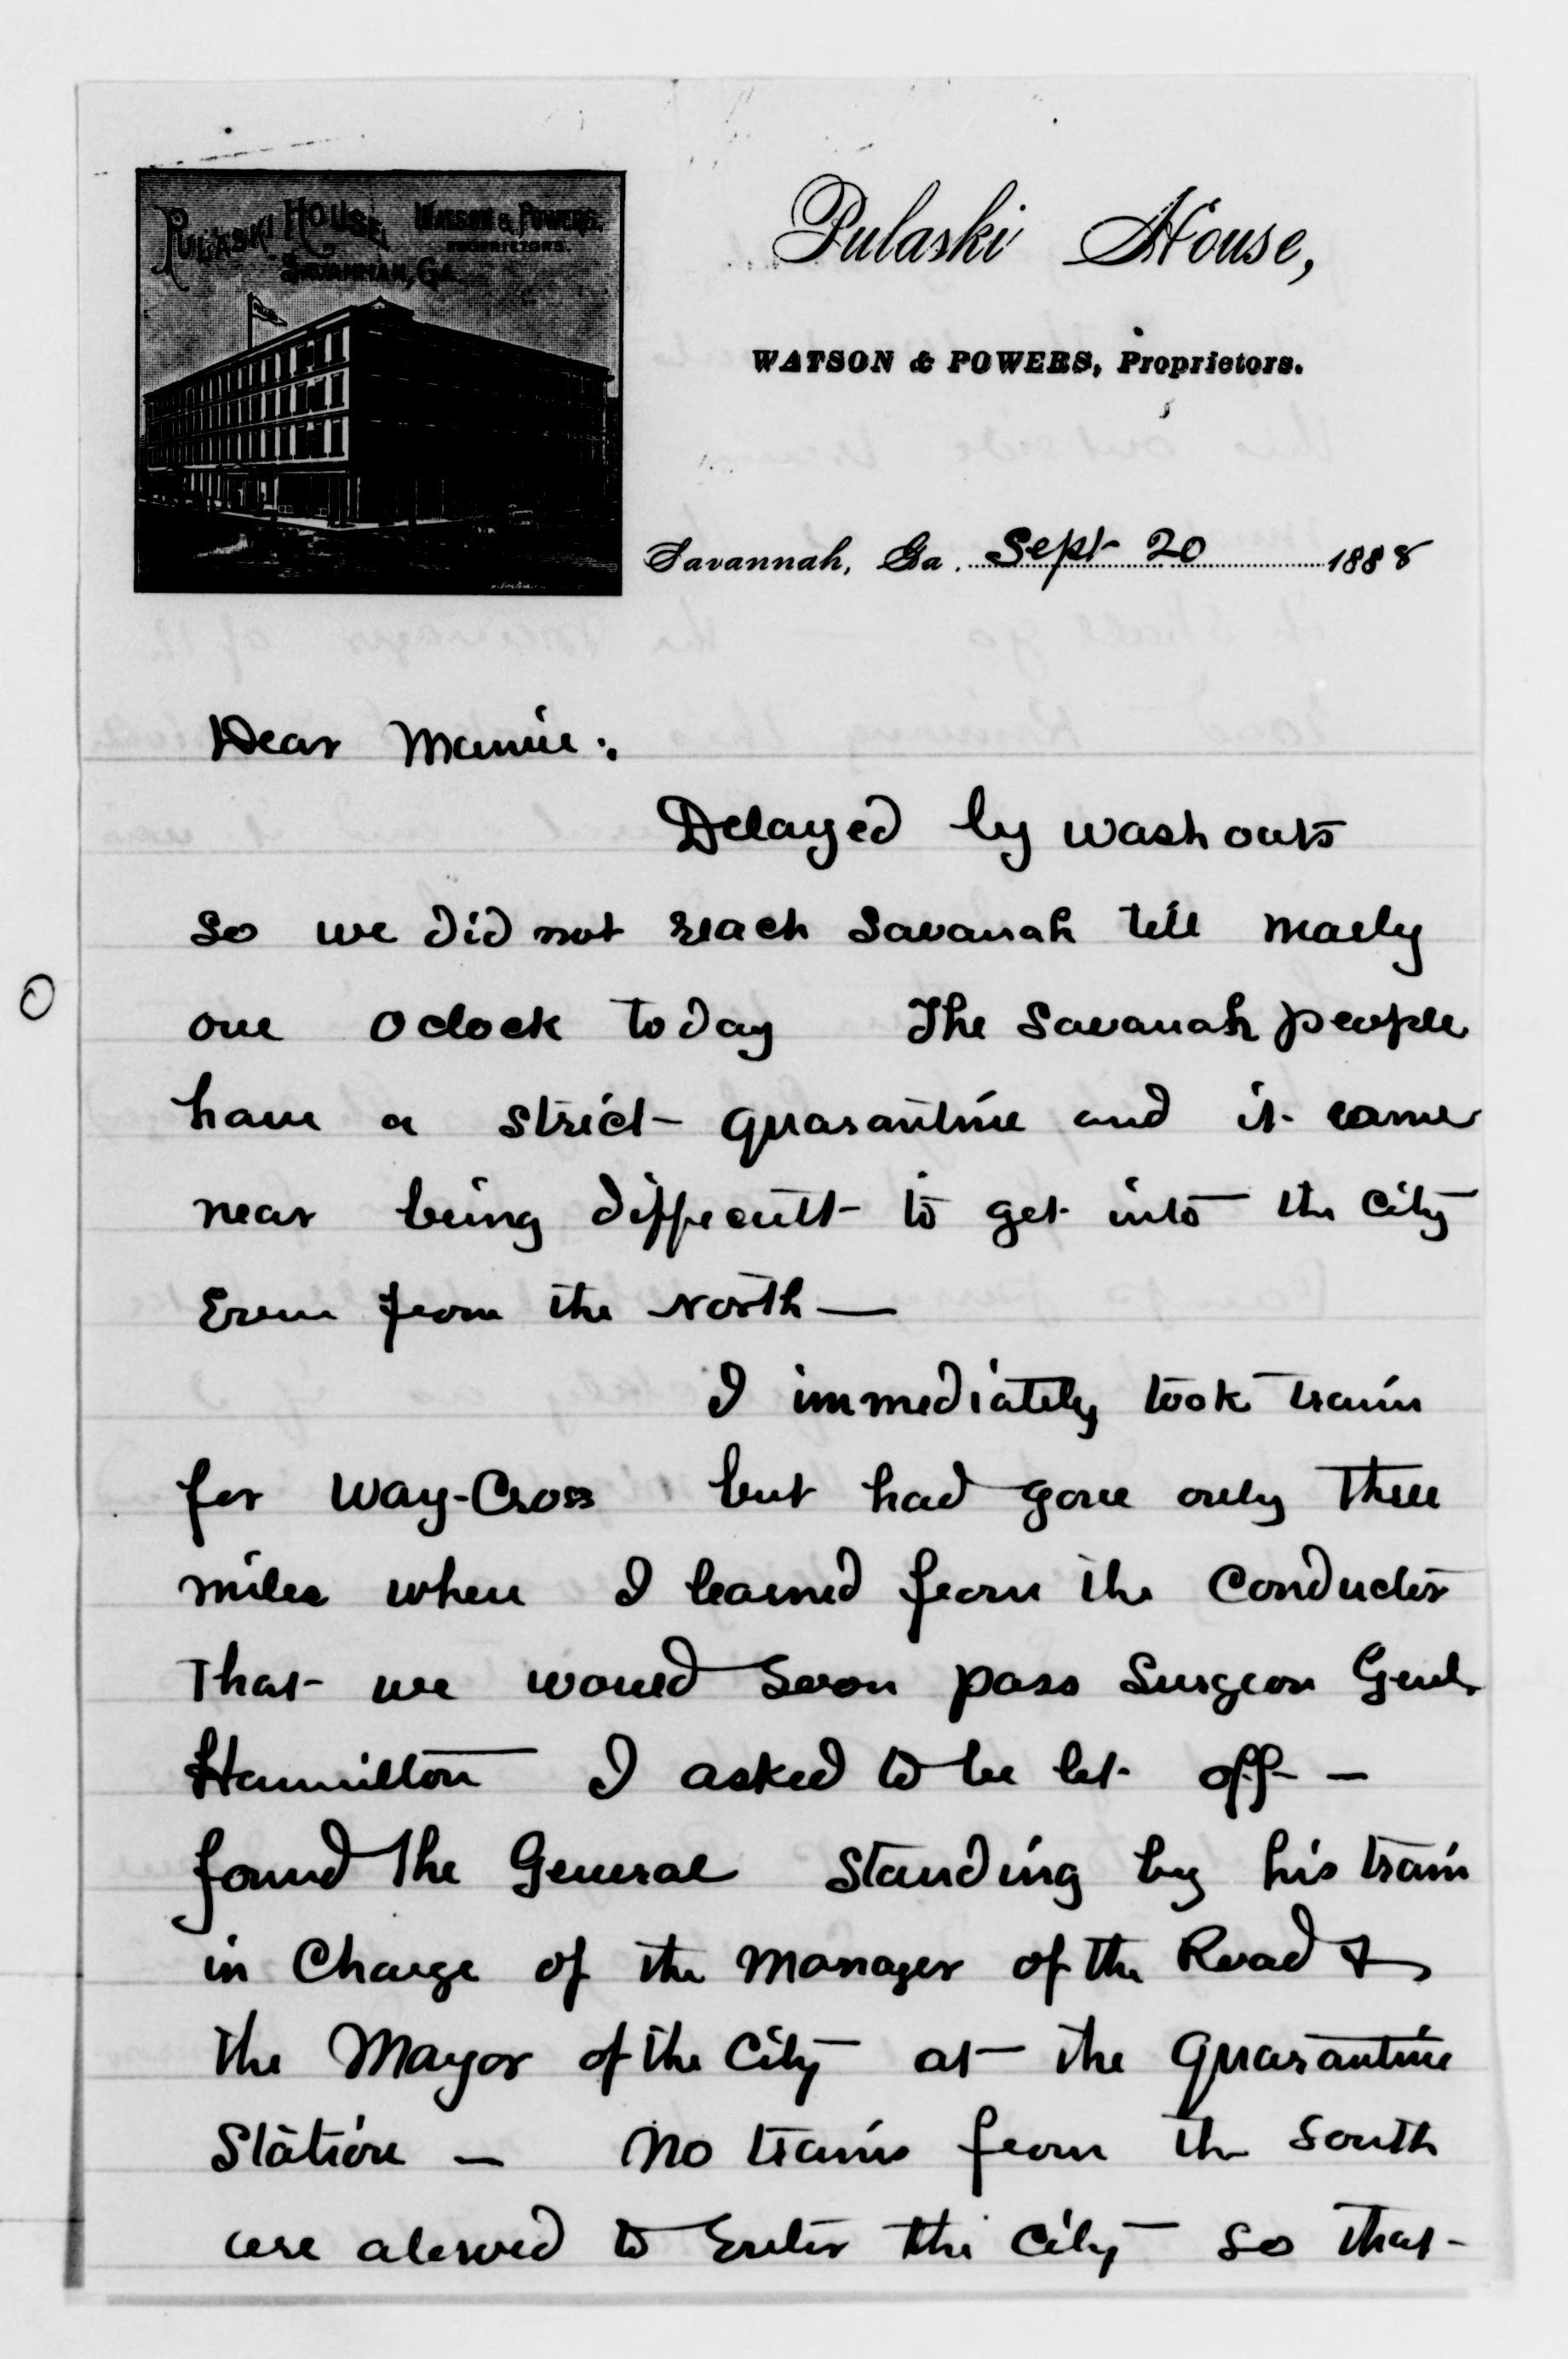 PULASKI HOUSE, WATSON & POWERS.
PROPRIETORS.
SAVANNAH, GA.
Pulaski House,
WATSON & POWERS, Proprietors.
Savannah, Ga. Sept 20 1888
Dear Mamie:
Delayed by wash outs
so we did not reach Savanah till nearly
one O clock today The Savanah people
have a strict quarantine and it came
near being difficult to get into the City
Even from the North —
I immediately took train
for Way-Cross but had gone only three
miles when I learned from the Conductor
That we would soon pass Surgeon Genl.
Hamilton I asked to be let off —
found the General standing by his train
in Charge of the Manager of the Road &
the Mayor of the City at the Quarantine
Station — No trains from the South
are alowed to Enter the City so that